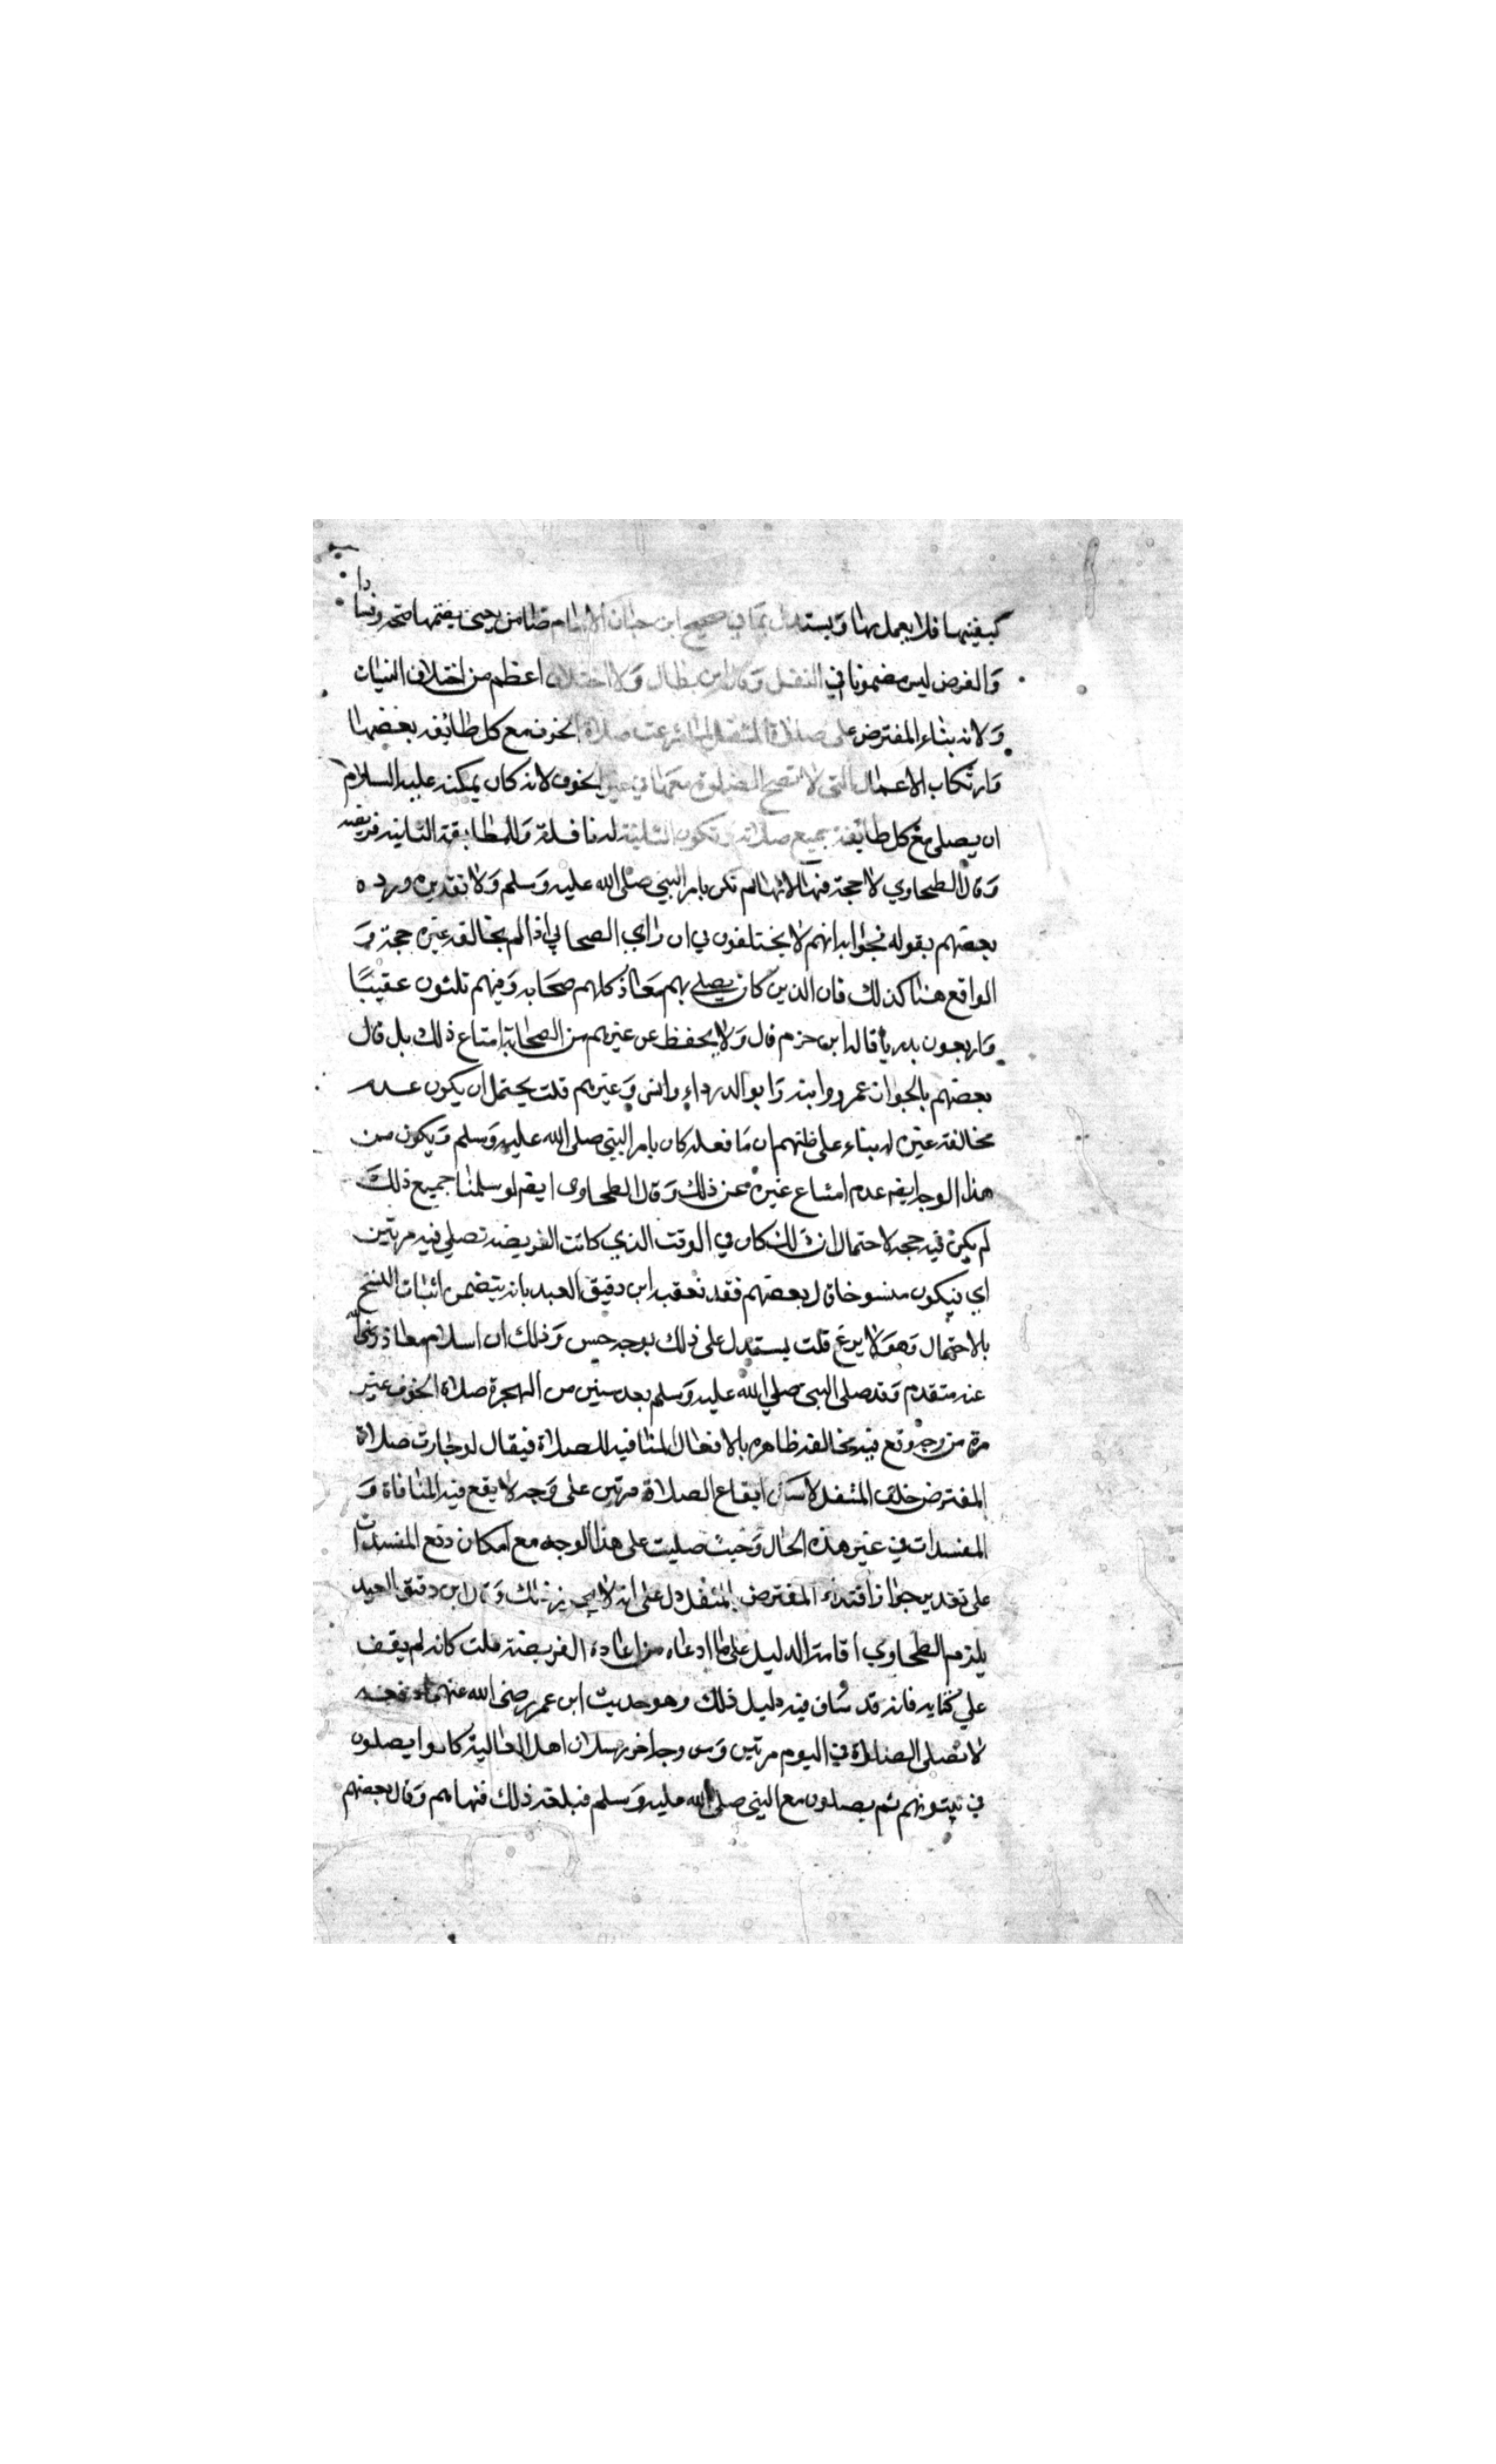 كيفيتها فلا يعمل بها ويستدل بما في صحيح ابن حبان الامام ضامن يعني يضمنها صحة وفسادا
والفرض ليس مضمونا في النفل وقال ابن بطال ولا اختلاف اعظم من اختلاف النيات
ولانه بناء المفترض على صلاة المتنفل لما شرعت صلاة الخوف مع كل طائفة بعضها
وارتكاب الاعمال التي لا تصح الصلوة معها في غير الخوف لانه كان يمكنه عليه السلام
ان يصلي مع كل طائفة جميع صلاته وتكون الثانية له نافلة وللطايفة الثانية فريضة
وقال الطحاوي لا حجة فيها لانها لم تكن بامر النبي صلى الله عليه وسلم ولا تقديره ورده
بعضهم بقوله فجوابه انهم لا يختلفون في ان راي الصحابي اذا لم يخالفه غيره حجة و
الواقع هنا كذلك فان الذين كان يصلي بهم معاذ كلهم صحابه وفيهم ثلثون عقيبا
واربعون بدريا قاله ابن حزم قال ولا يحفظ عن غيرهم من الصحابة امتناع ذلك بل قال
بعضهم بالجواز عمر وابنه وابو الدرداء وانس وغيرهم قلت يحتمل ان يكون عدم
مخالفة غيره له بناء على ظنهم ان ما فعله كان بامر النبي صلى الله عليه وسلم ويكون من
هذا الوجه ايضه عدم امتناع غيره عن ذلك وقال الطحاوى ايضه لو سلمنا جميع ذلك
لم يكن فيه حجه لاحتمال ان ذلك كان في الوقت الذي كانت الفريضة تصلي فيه مرتين
اي فيكون منسوخا قال بعضهم فقد تعقبه ابن دقيق العيد بانه يتضمن اثبات النسخ
بالاحتمال وهو لا يرغ قلت يستدل على ذلك بوجه حسن وذلك ان اسلام معاذ رضي الله
عنه متقدم وقد صلى النبي صلي الله عليه وسلم بعد سنين من الهجرة صلاة الخوف غير
مرة من وجه وقع فيه مخالفة ظاهره بالافعال المنافيه للصلاة فيقال لو جازت صلاة
المفترض خلف المتنفل لامكن ايقاع الصلاة مرتين على وجه لا يقع فيه المنافاة و
المفسدات في غير هذه الحال وحيث صليت على هذا الوجه مع امكان دفع المفسدات
على تقدير جواز اقتداء المفترض بالمتنفل دل على انه لا يجوز ذلك وقال ابن دقيق العيد
يلزم الطحاوي اقامة الدليل على ما ادعاه من اعادة الفريضة قلت كانه لم يقف
علي كتابه فانه قد ساق فيه دليل ذلك وهو حديث ابن عمر رضى الله عنهما رفعه
لا تصلى الصلاة في اليوم مرتين ومن وجه اخر مرسل ان اهل العالية كانوا يصلون
في بيوتهم ثم يصلون مع النبي صلى الله عليه وسلم فبلغه ذلك فنهاهم وقال بعضهم